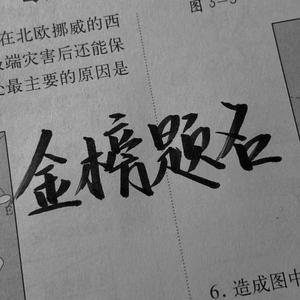 图 3-3
在北欧挪威的西
端灾害后还能保
处最主要的原因是
金榜题名
6. 造成图中